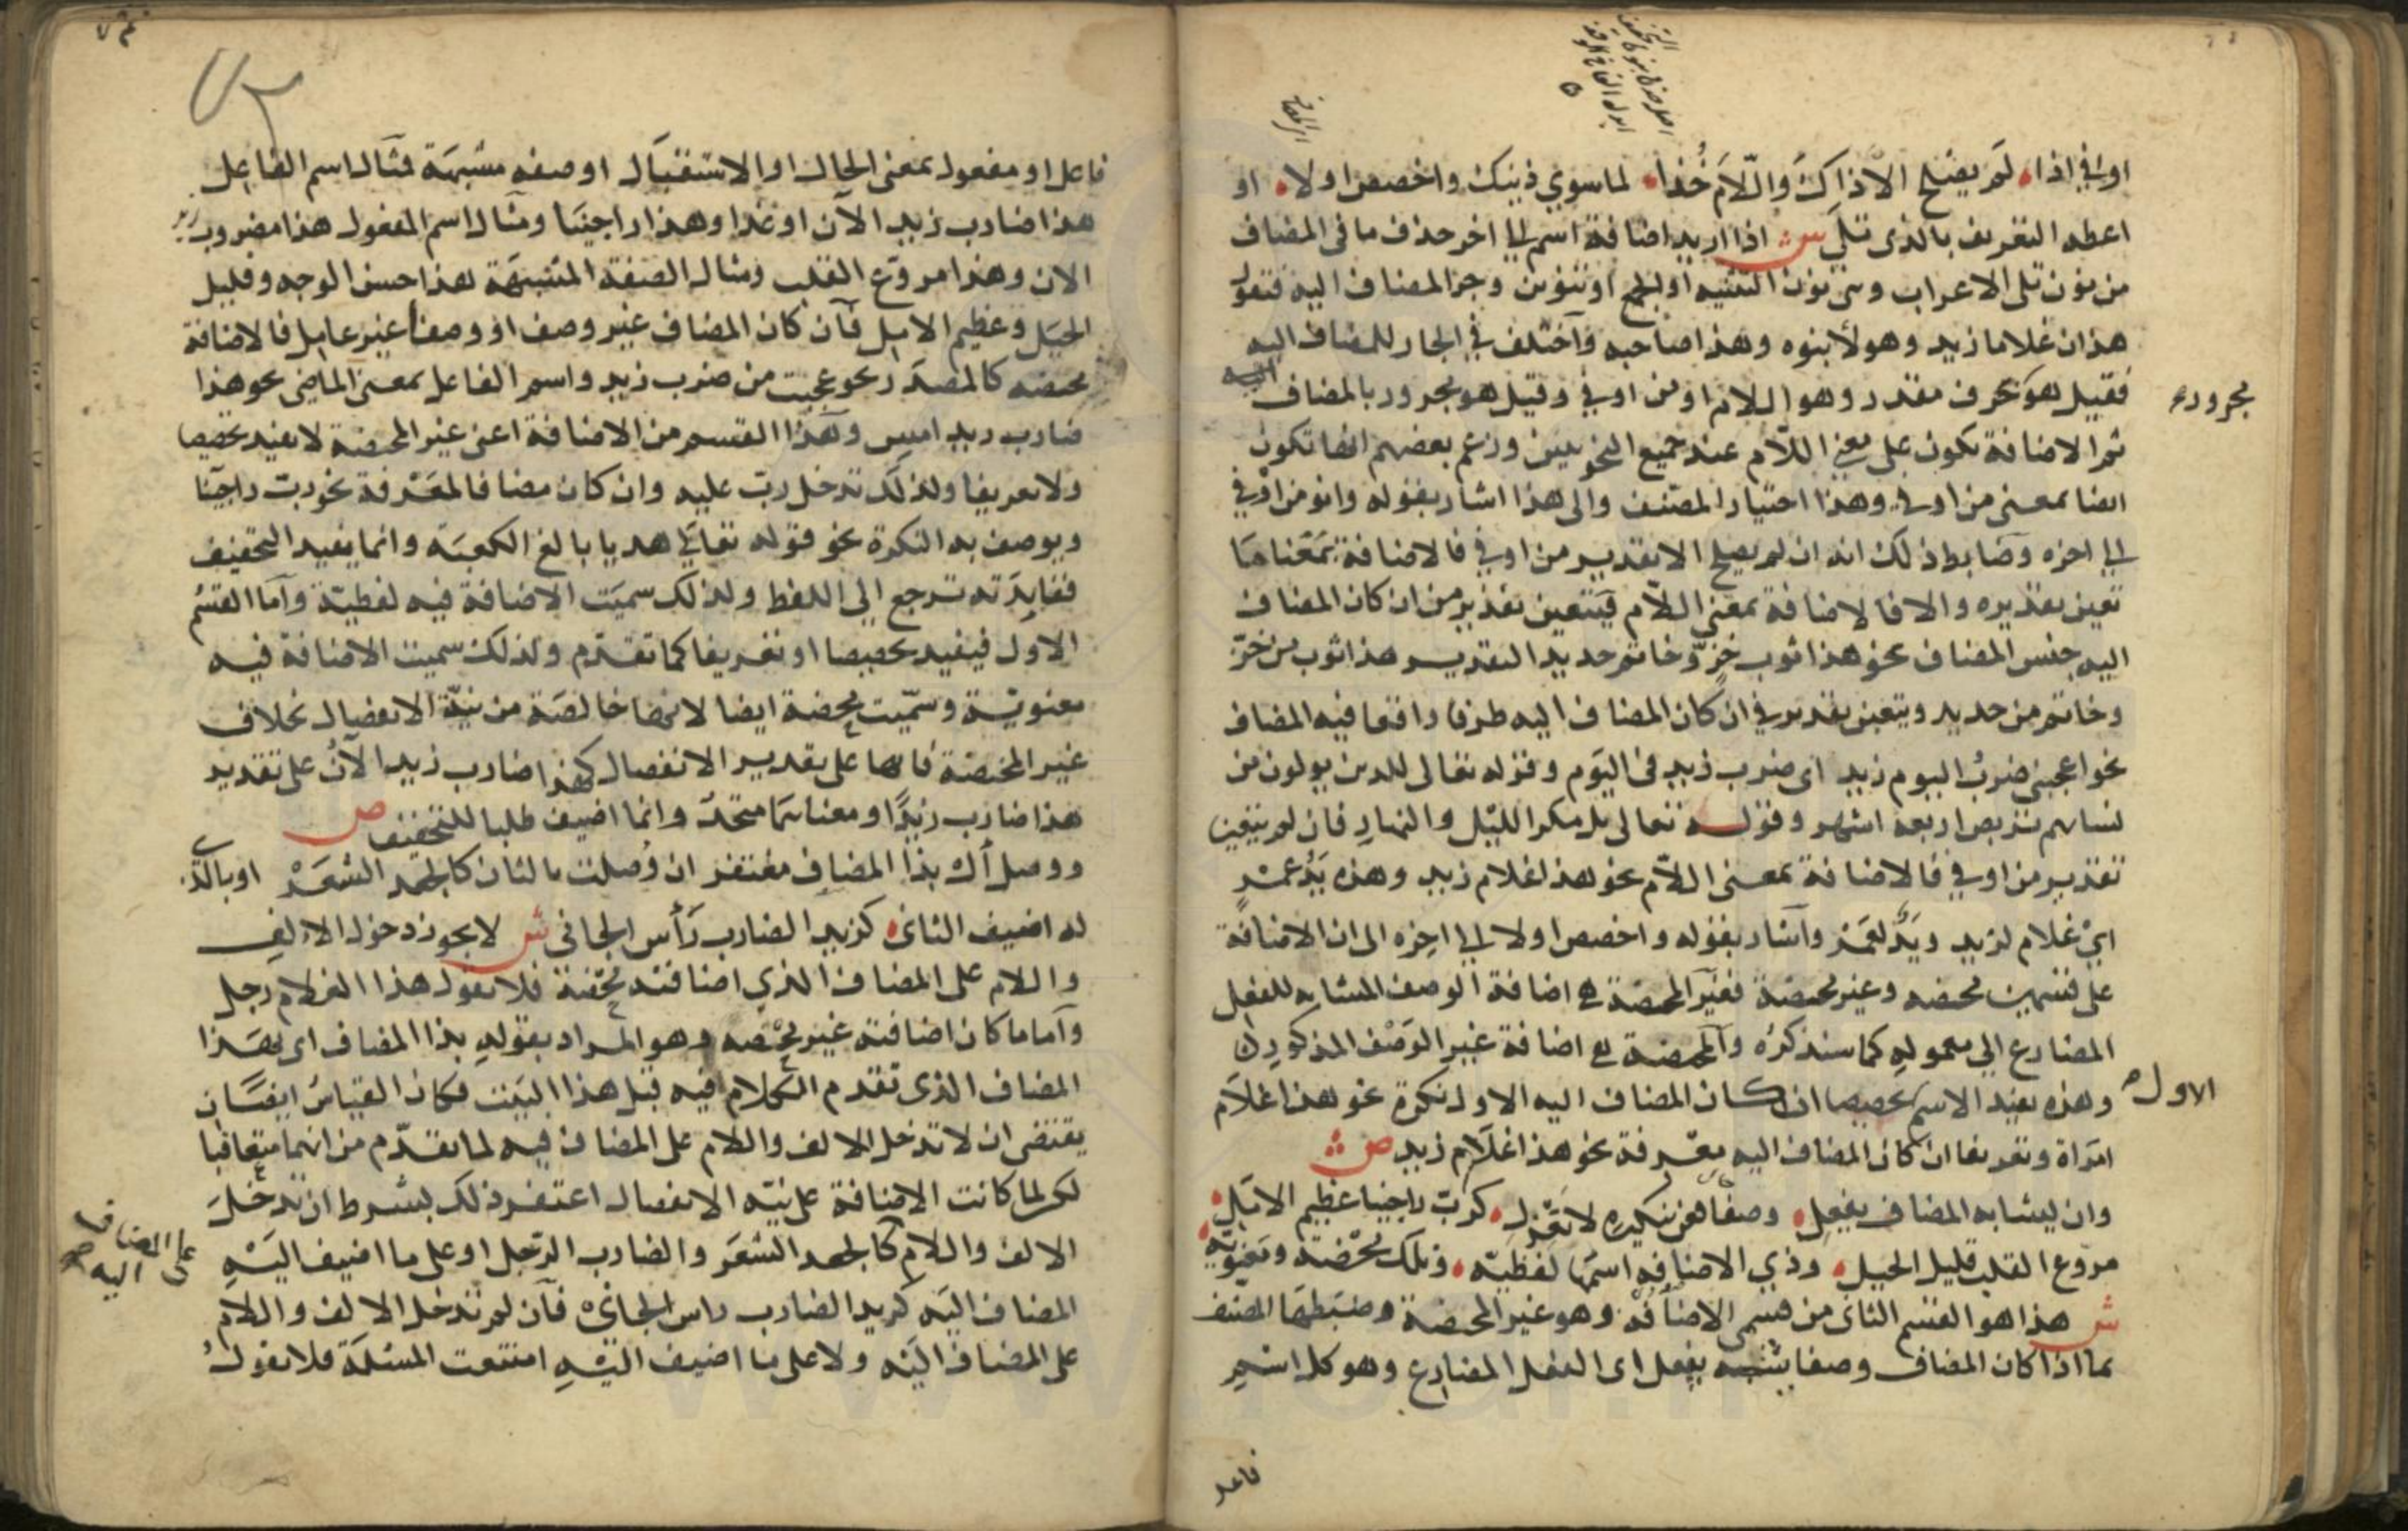 او في اذا لم يصلح الا ذاك واللام خذا لما سوي ذينك واخصص اولا او
اعطه التعريف بالذي تلي ش اذا اريد اضافة اسم الي اخر حذف ما في المضاف
من نون تلي الاعراب وهي نون التثنيه او الجمع او تنوين وجر المضاف اليه فتقول
هذان غلاما زيد وهولا بنوه وهذا صاحبه واختلف في الجار للمضاف اليه
فقيل هو بحرف مقدر وهو اللام او من او في وقيل هو مجرور بالمضاف
مجروره
ثم الاضافة تكون على معني اللام عند جميع النحويين وزعم بعضهم انها تكون
ايضا بمعنى من او في وهذا اختيار المصنف والى هذا اشار بقوله وانو من او في
الي اخره وضابط ذلك انه ان لم يصلح الا تقدير من او في فالاضافة بمعناها
تعين تقديره والا فالاضافة بمعني اللام فيتعين تقدير من ان كان المضاف
اليه جنس المضاف نحو هذا ثوب خز وخاتم حديد التقدير هذا ثوب من خز
وخاتم من حديد ويتعين تقدير في ان كان المضاف اليه ظرفا واقعا فيه المضاف
نحو اعجبني ضرب اليوم زيد اى ضرب زيد في اليوم وقوله تعالى للذين يولون من
نسايهم تربص اربعة اشهر وقوله تعالى بل مكر الليل والنهار فان لم يتعين
تقدير من او في فالاضافة بمعنى اللام نحو هذا غلام زيد وهذه يد عمرو
اي غلام لزيد ويد لعمرو واشار بقوله واخصص اولا الي اخره الى ان الاضافة
على قسمين محضه وغير محضة فغير المحضة هي اضافة الوصف المشابه للفعل
المضارع الي معموله كما سنذكره والمحضة هي اضافة غير الوصف المذكور
الاول
وهذه تفيد الاسم تخصيصا ان كان المضاف اليه الاول نكرة نحو هذا غلام
امراة وتعريفا ان كان المضاف اليه معرفة نحو هذا غلام زيد ص
وان يشابه المضاف يفعل وصفا فعن تنكيره لا يعزل كرب راجينا عظيم الامل
مروع القلب قليل الحيل وذي الاضافه اسمها لفظيه وتلك محضة ومعنويه
ش هذا هو القسم الثاني من قسمي الاضافة وهو غير المحضة وضبطها المصنف
بما اذا كان المضاف وصفا يشبه يفعل اى الفعل المضارع وهو كل اسم
فاعل
فاعل او مفعول بمعنى الحال او الاستقبال او صفه مشبهة فمثال اسم الفاعل
هذا ضارب زيد الان او غدا وهذا راجينا ومثال اسم المفعول هذا مضروب
الان وهذا مروع القلب ومثال الصفة المشبهة هذا حسن الوجه وقليل
الحيل وعظيم الامل فان كان المضاف غير وصف او وصفا غير عامل فالاضافة
محضه كالمصدر نحو عجبت من ضرب زيد واسم الفاعل بمعنى الماضي نحو هذا
ضارب زيد امس وهذا القسم من الاضافة اعني غير المحضة لا يفيد تخصيصا
ولا تعريفا ولذلك تدخل رب عليه وان كان مضافا لمعرفة نحو رب راجينا
ويوصف به النكرة نحو قوله تعالى هديا بالغ الكعبة وانما يفيد التخفيف
ففايدته ترجع الي اللفظ ولذلك سميت الاضافة فيه لفظية واما القسم
الاول فيفيد تخصيصا او تعريفا كما تقدم ولذلك سميت الاضافة فيه
معنوية وسميت محضة ايضا لانها خالصة من نية الانفصال بخلاف
غير المحضة فانها على تقدير الانفصال كهذا ضارب زيد الآن على تقدير
هذا ضارب زيدا ومعناهما متحد وانما اضيف طلبا للتخفيف ص
ووصل ال بذا المضاف مغتفر ان وصلت بالثان كالجعد الشعر او بالذي
له اضيف الثاني كزيد الضارب راس الجاني ش لا يجوز دخول الالف
واللام على المضاف الذي اضافته محضة فلا تقول هذا الغلام رجل
واما ما كان اضافته غير محضه وهو المراد بقوله بذا المضاف اى بهذا
المضاف الذي تقدم الكلام فيه قبل هذا البيت فكان القياس ايضا ان
يقتضى ان لا تدخل الالف واللام على المضاف فيه لما تقدم من انهما متعاقبا
لكن لما كانت الاضافة على نية الانفصال اغتفر ذلك بشرط ان تدخل
الالف واللام كالجعد الشعر والضارب الرجل او على ما اضيف اليه
على المضاف
اليه
المضاف اليه كزيد الضارب راس الجاني فان لم تدخل الالف واللام
على المضاف اليه ولا على ما اضيف اليه امتنعت المسئلة فلا تقول